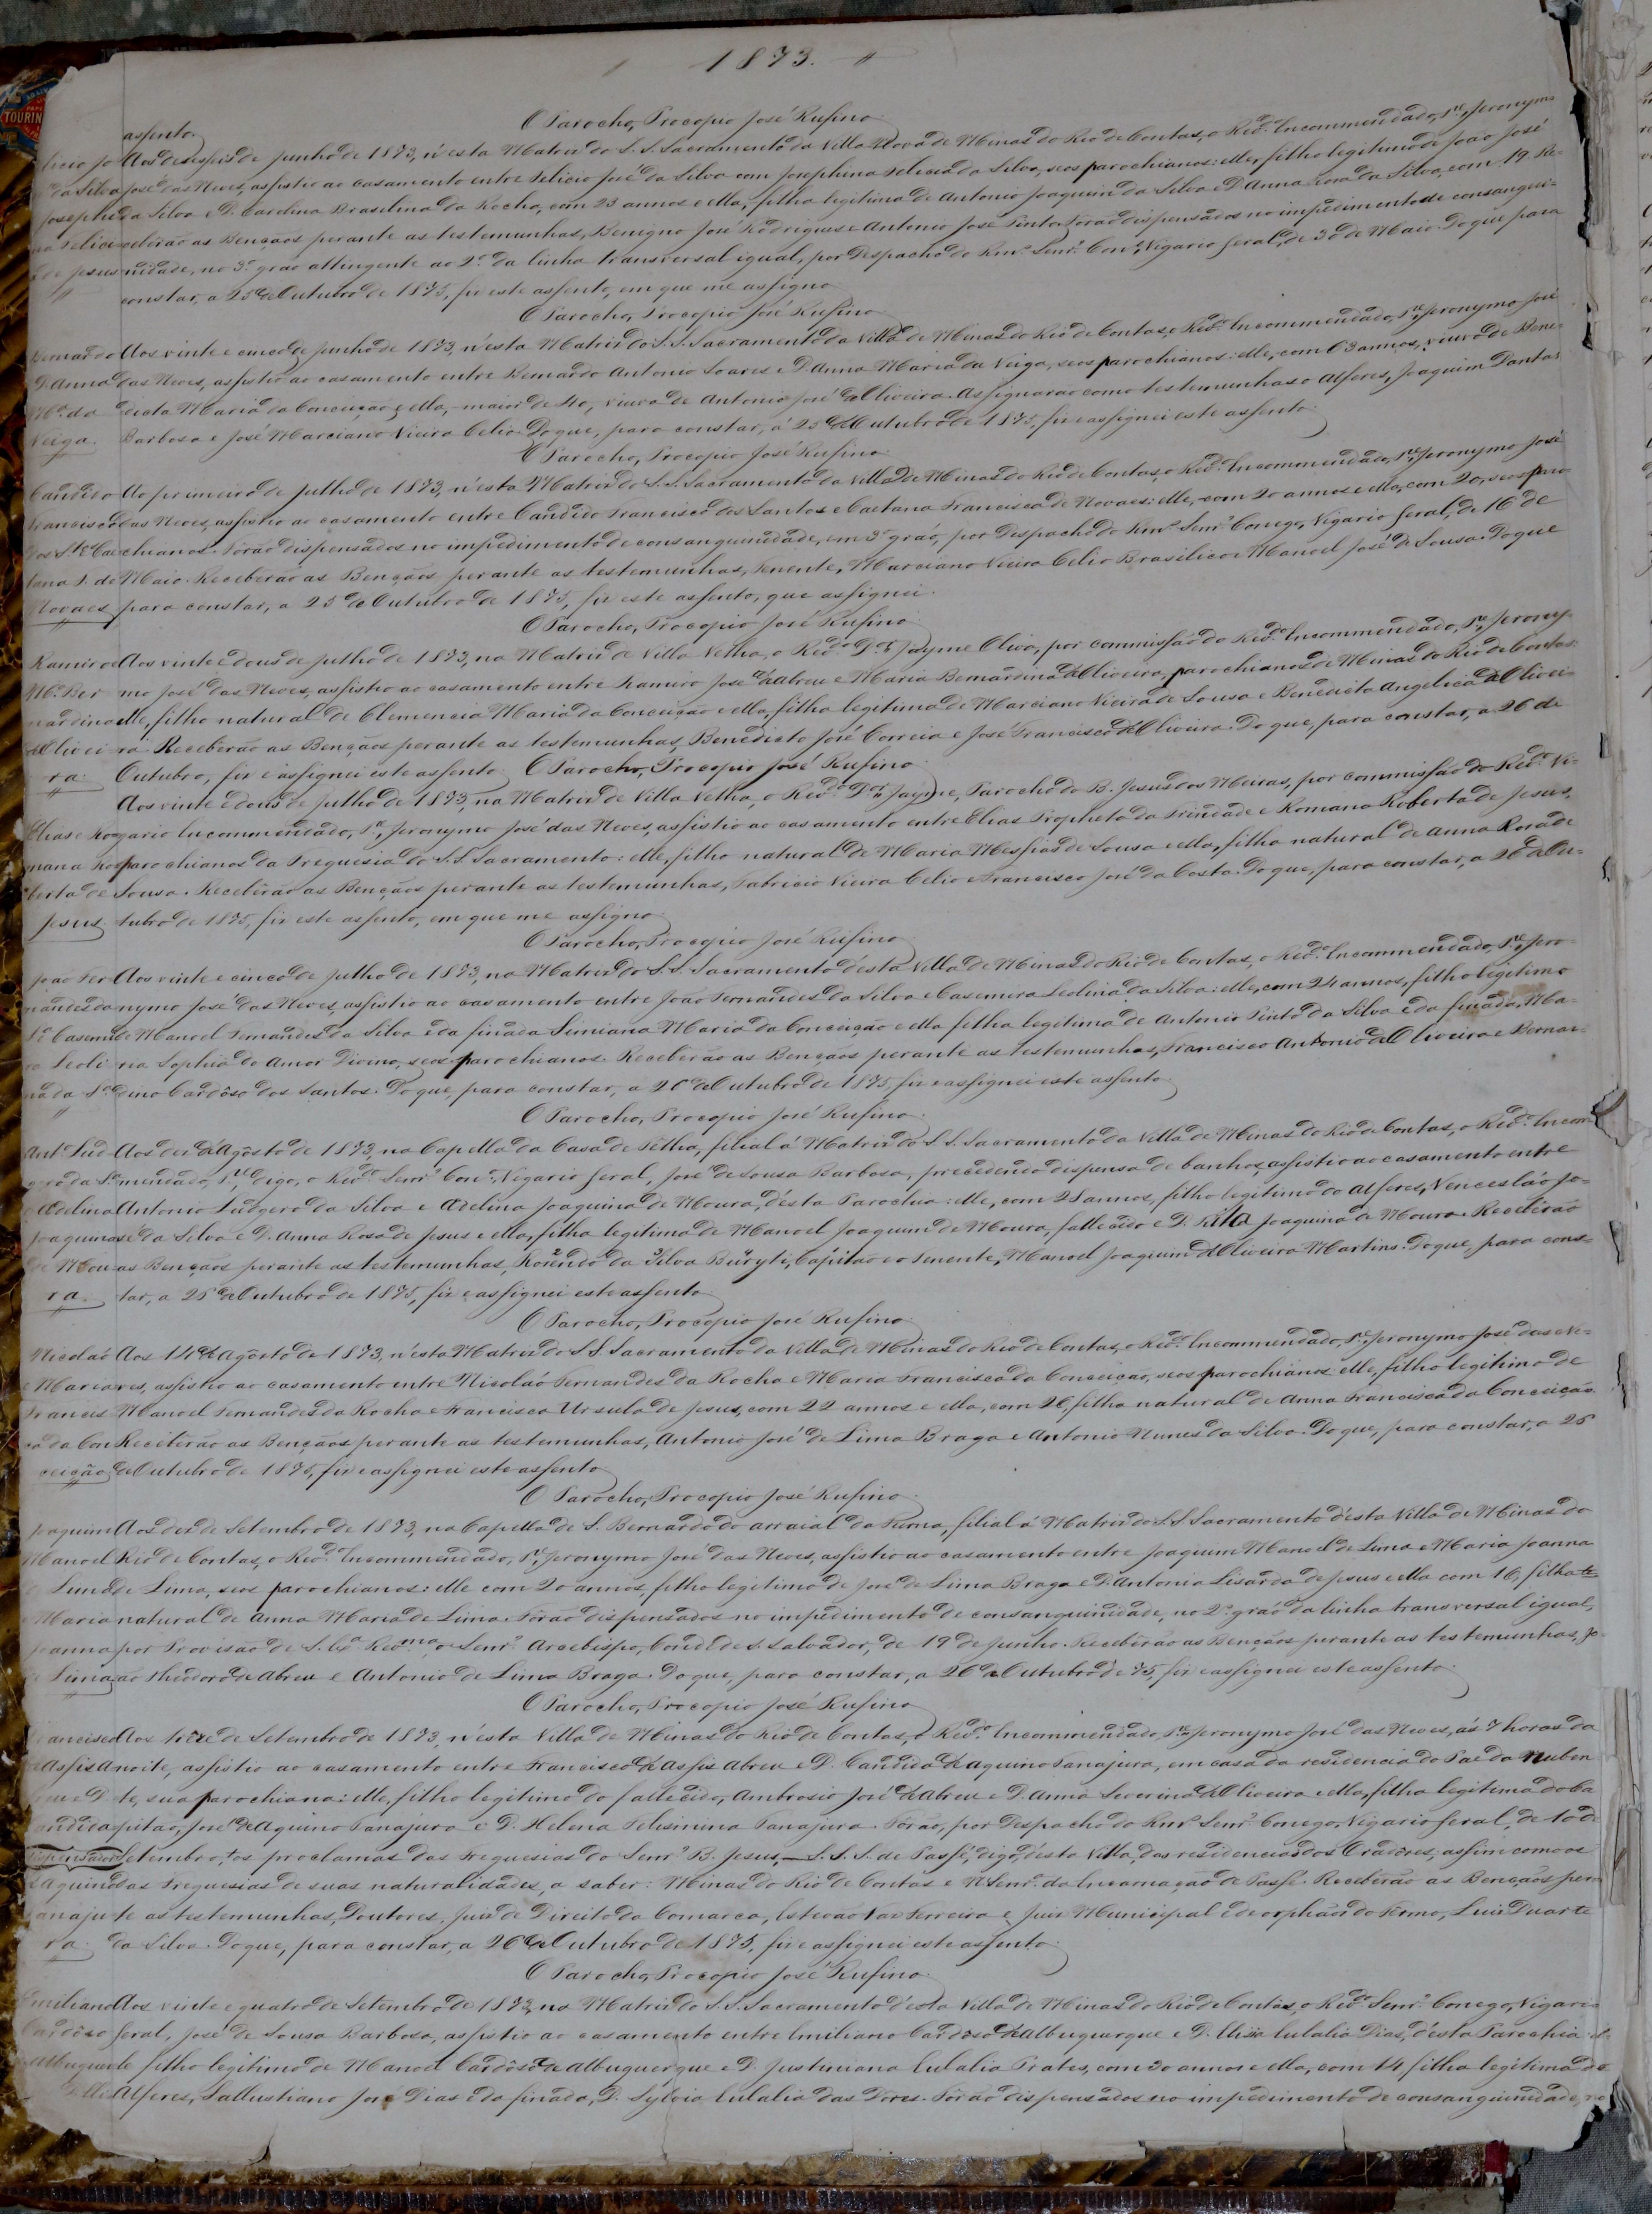 1873.
assento.
O Parocho, Procopio José Rufino
Aos deseseis de Junho de 1873, n'esta Matriz do S. S. Sacramento da Villa Nova de Minas do Rio de Contas, o Redº Incommendado, Pe, Jeronymo
José das Neves, assistio ao casamento entre Felicio José da Silva com Josephina Felicia da Silva, seos parochianos: elle, filho legitimo de João José
da Silva e D. Carolina Brasilina da Rocha, com 23 annos e ella, filha legitima de Antonio Joaquim da Silva e D. Anna Rosa da Silva, com 19. Re-
ceberão as Bençãos perante as testemunhas, Benigno José Rodrigues e Antonio José Pinto. Forão dispensados no impedimento de consangui-
nidade, no 3º grao attingente ao 2º da linha transversal igual, por Despacho do Rmº Senrº Conº, Vigario Geral, de 30 de Maio. Do que para
constar, a 25 de Outubro de 1875, fiz este assento, em que me assigno
O Parocho, Procopio José Rufino
Bernardo Aos vinte e cinco de Junho de 1873, n'esta Matriz do S. S. Sacramento da Villa de Minas do Rio de Contas, o Redº Incommendado, Pe, Jeronymo José
D. Anna das Neves, assistio ao casamento entre Bernardo Antonio Soares e D. Anna Maria da Veiga, seos parochianos: elle, com 63 annos, viuvo de Bene-
Mª da dicta Maria da Conceição e ella, maior de 40, viuva de Antonio José d'Oliveira. Assignarão como testemunhas o Alferes, Joaquim Dantas
Veiga. Barbosa e José Marciano Vieira Celio. Do que, para constar, á 25 de Outubro de 1875, fiz e assignei este assento.
O Parocho, Procopio José Rufino.
Candido Ao primeiro de Julho de 1873, n'esta Matriz do S. S. Sacramento da Villa de Minas do Rio de Contas, o Redº Incommendado, Pe, Jeronymo José
Francisco das Neves, assistio ao casamento entre Candido Francisco dos Santos e Caetana Francisca de Novaes: elle, com 20 annos e ella, com 20, seos paro-
dos Stºs Cae chianos. Forão dispensados no impedimento de consanguinidade, em 3º gráo, por Despacho do Rmº Senrº Conego, Vigario Geral, de 16 de
tana F. de Maio. Receberão as Bençãos perante as testemunhas, Tenente, Marciano Vieira Celio Brasilico e Manoel José de Sousa. Do que
Novaes para constar, a 25 de Outubro de 1875, fiz este assento, que assignei.
O Parocho, Procopio José Rufino.
Ramiro e Aos vinte e dous de Julho de 1873, na Matriz de Villa Velha, o Redº Dor Jayme Oliva, por commissão do Redº Incommendado, Pe, Jerony-
Mª Ber mo José das Neves, assistio ao casamento entre Ramiro José d'Abreu e Maria Bernardina d'Oliveira, parochianos de Minas do Rio de Contas:
nardina elle, filho natural de Clemencia Maria da Conceição e ella, filha legitima de Marciano Vieira de Sousa e Benedicta Angelica d'Olivei-
d'Olivei ra. Receberão as Bençãos perante as testemunhas, Benedicto José Correia e José Francisco d'Oliveira. Do que, para constar, a 26 de
ra. Outubro, fiz e assignei este assento. O Parocho, Procopio José Rufino.
Aos vinte e dous de Julho de 1873, na Matriz de Villa Velha, o Revdo Dor Jayme, Parocho do B. Jesus dos Meiras, por commissão do Redº Vi-
Elias e Ro gario Incommendado, Pe, Jeronymo José das Neves, assistio ao casamento entre Elias Propheta da Trindade e Romana Roberta de Jesus,
mana Ro parochianos da Freguesia do S. S. Sacramento: elle, filho natural de Maria Messias de Sousa e ella, filha natural de Anna Rosa de
berta de Sousa. Receberão as Bençãos perante as testemunhas, Fabricio Vieira Celio e Francisco José da Costa. Do que, para constar, a 26 de Ou-
Jesus tubro de 1875, fiz este assento, em que me assigno.
O Parocho, Procopio José Rufino
João Fer Aos vinte e cinco de Julho de 1873, na Matriz do S. S. Sacramento d'esta Villa de Minas do Rio de Contas, o Redº Incommendado, Pe, Jero-
nandes da nymo José das Neves, assistio ao casamento entre João Fernandes da Silva e Casemira Leolina da Silva: elle, com 24 annos, filho legitimo
Sª Casemi de Manoel Fernandes da Silva e da finada Simiana Maria da Conceição e ella filha legitima de Antonio Pinto da Silva e da finada, Ma-
ra Leoli ria Sophia do Amor Divino, seos parochianos. Receberão as Bençãos perante as testemunhas, Francisco Antonio d'Oliveira e Bernar-
na da Sª dino Cardôso dos Santos. Do que, para constar, a 26 de Outubro de 1875, fiz e assignei este assento.
O Parocho, Procopio José Rufino.
Antº Lud Aos dez d'Agôsto de 1873, na Capella da Casa de Telha, filial á Matriz do S. S. Sacramento da Villa de Minas do Rio de Contas, o Redº Incom-
gero da Sª mendado, Pe, digo, o Revdº Senrº Conº, Vigario Geral, José de Sousa Barbosa, precedendo dispensa de banhos, assistio ao casamento entre
e Adelina Antonio Ludgero da Silva e Adelina Joaquina de Moura, d'esta Parochia: elle, com 28 annos, filho legitimo do Alferes, Venceslão Jo-
Joaquina sé da Silva e D. Anna Rosa de Jesus e ella, filha legitima de Manoel Joaquim de Moura, fallecido e D. Rita Joaquina de Moura. Receberão
de Mou as Bençãos perante as testemunhas, Rosendo da Silva Buryti, Capitão e o Tenente, Manoel Joaquim d'Oliveira Martins. Do que, para cons-
ra. tar, a 26 de Outubro de 1875, fiz e assignei este assento
O Parocho, Procopio José Rufino.
Nicoláo Aos 14 de Agôsto de 1873, n'esta Matriz do S. S. Sacramento da Villa de Minas do Rio de Contas, o Redº Incommendado, Pe, Jeronymo José das Ne-
e Maria ves, assistio ao casamento entre Nicoláo Fernandes da Rocha e Maria Francisca da Conceição, seos parochianos: elle, filho legitimo de
Francis Manoel Fernandes da Rocha e Francisca Ursula de Jesus, com 22 annos e ella, com 26, filha natural de Anna Francisca da Conceição.
ca da Con Receberão as Bençãos perante as testemunhas, Antonio José de Lima Braga e Antonio Nunes da Silva. Do que, para constar, a 26
ceição de Outubro de 1875, fiz e assignei este assento
O Parocho, Procopio José Rufino.
Joaquim Aos dez de Setembro de 1873, na Capella de S. Bernardo do arraial da Furna, filial á Matriz do S. S. Sacramento d'esta Villa de Minas do
Manoel Rio de Contas, o Revdº Incommendado, Pe, Jeronymo José das Neves, assistio ao casamento entre Joaquim Manoel de Lima e Maria Joanna
de Lima, seos parochianos: elle com 20 annos, filho legitimo de José de Lima Braga e D. Antonia Lisarda de Jesus e ella com 16, filha
Maria natural de Anna Maria de Lima. Forão dispensados no impedimento de consanguinidade, no 2º gráo da linha transversal igual,
Joanna por Provisão de S. Exª Revma, o Senrº Arcebispo, Conde de S. Salvador, de 19 de Junho. Receberão as Bençãos perante as testemunhas, Jo-
de Lima ão Theodoro de Abreu e Antonio de Lima Braga. Do que, para constar, a 26 de Outubro de 75, fiz e assignei este assento.
O Parocho, Procopio José Rufino
Francisco Aos treze de Setembro de 1873, n'esta Villa de Minas do Rio de Contas, o Redº Incommendado, Pe, Jeronymo José das Neves, ás 7 horas da
noite, assistio ao casamento entre Francisco d'Assis Abreu e D. Candida d'Aquino Tanajura, em casa da residencia do Pae da nuben
te, sua parochiana: elle, filho legitimo do fallecido, Ambrosio José d'Abreu e D. Anna Severina d'Oliveira e ella, filha legitima do Ca
pitão, José d'Aquino Tanajura e D. Helena Felismina Tanajura. Forão, por Despacho do Rmº Senrº Conego, Vigario Geral, de 10 de
dispensados Setembro, os proclamas das Freguesias do Senrº B. Jesus, S. S. S. de Passé, digo, d'esta Villa, das residencias dos Oradôres; assim como os
d'Aquino das Freguesias de suas naturalidades, a saber: Minas do Rio de Contas e N. Senrª da Encarnação de Passé. Receberão as Bençãos peran
Tanaju te as testemunhas, Doutores, Juiz de Direito da Comarca, Estevão Vaz Ferreira e Juiz Municipal e de orphãos do Termo, Luiz Duarte
ra. da Silva. Do que, para constar, a 26 de Outubro de 1875, fiz e assignei este assento.
O Parocho, Procopio José Rufino.
Emiliano Aos vinte e quatro de Setembro de 1873, na Matriz do S. S. Sacramento d'esta Villa de Minas do Rio de Contas, o Redº Senrº Conego, Vigario
Cardôso Geral, José de Sousa Barbosa, assistio ao casamento entre Emiliano Cardôso d'Albuquerque e D. Elisia Eulalia Dias, d'esta Parochia: el-
le filho legitimo de Manoel Cardôso d'Albuquerque e D. Justiniana Eulalia Prates, com 30 annos e ella, com 14 filha legitima do
Alferes, Sallustiano José Dias e da finada, D. Sylvia Eulalia das Dores. Forão dispensados no impedimento de consanguinidade, no